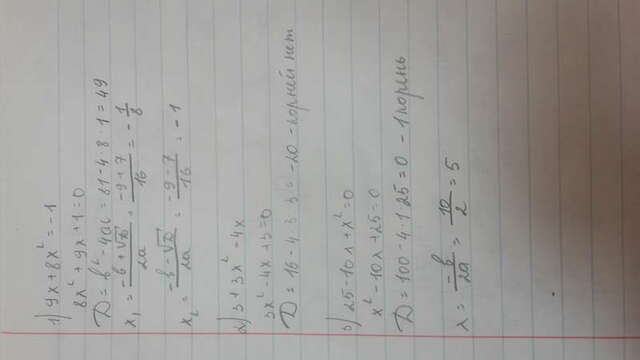 1) 9x + 8x² = -1
8x² + 9x + 1 = 0
D = b² - 4ac = 81 - 4 · 8 · 1 = 49
x₁ = (-b + √D)/2a = (-9+7)/16 = -1/8
x₂ = (-b - √D)/2a = (-9-7)/16 = -1
2) 3 + 3x² - 4x
3x² - 4x + 3 = 0
D = 16 - 4 · 3 · 3 = -20 - корней нет
3) 25 - 10x + x² = 0
x² - 10x + 25 = 0
D = 100 - 4 · 1 · 25 = 0 - 1 корень
x = -b/2a = 10/2 = 5